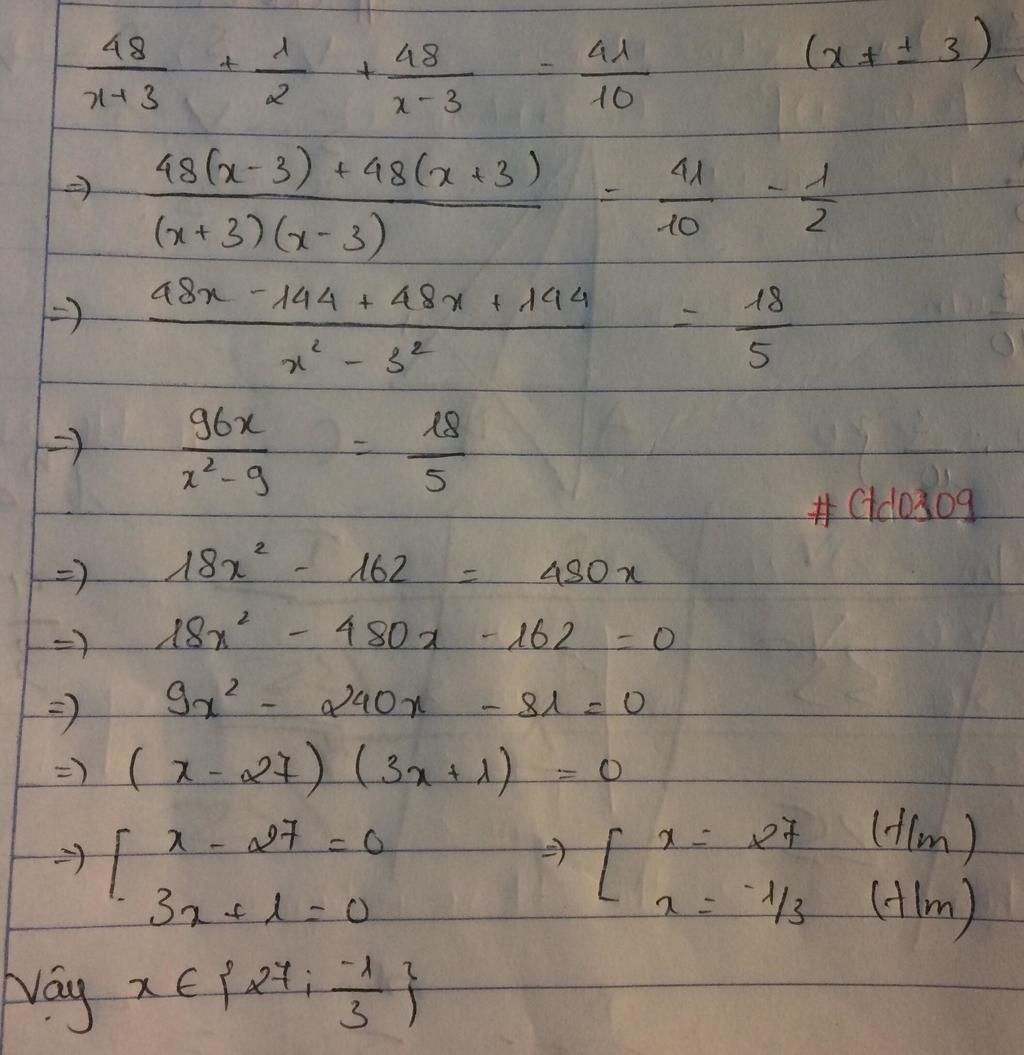 48/(x+3) + 1/2 + 48/(x-3) = 41/10 (x ≠ ± 3)
=> (48(x-3) + 48(x+3))/((x+3)(x-3)) = 41/10 - 1/2
=> (48x - 144 + 48x + 144)/(x² - 3²) = 18/5
=> 96x/(x² - 9) = 18/5
# Ctd0309
=> 18x² - 162 = 480x
=> 18x² - 480x - 162 = 0
=> 9x² - 240x - 81 = 0
=> (x - 27)(3x + 1) = 0
=> [ x - 27 = 0 => [ x = 27 (t/m)
3x + 1 = 0 x = -1/3 (t/m)
Vậy x ∈ {27; -1/3}